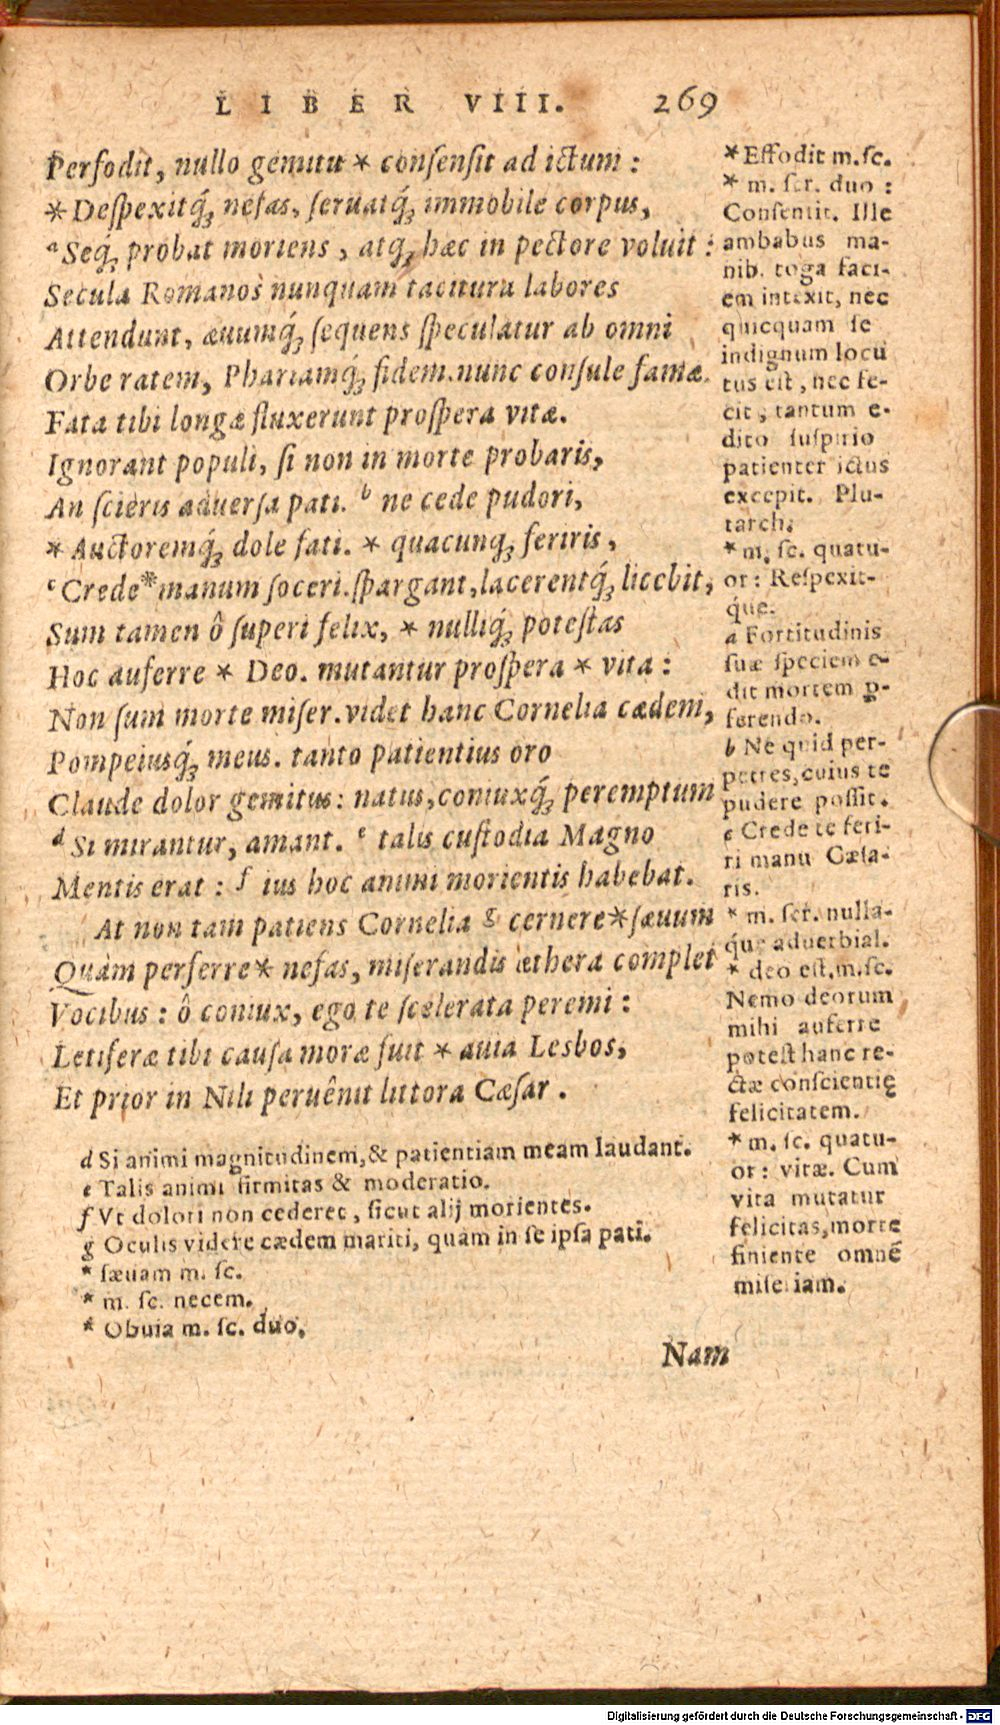 LIBER VIII. 269
Perfodit, nullo gemitu * conſenſit ad ictum :
*Deſpexitq́ꝫ nefas, ſeruatq́ꝫ immobile corpus,
ᵃSeqꝫ probat moriens, atqꝫ hæc in pectore voluit :
Secula Romanos nunquam tacitura labores
Attendunt, æuumq́ꝫ ſequens ſpeculatur ab omni
Orbe ratem, Phariamq́ꝫ fidem.nunc conſule famæ.
Fata tibi longæ fluxerunt proſpera vitæ.
Ignorant populi, ſi non in morte probaris,
An ſcieris aduerſa pati. ᵇ ne cede pudori,
* Auctoremq́ꝫ dole fati. * quacunqꝫ feriris,
ᶜCrede*manum ſoceri.ſpargant,lacerentq́ꝫ licebit,
Sum tamen ô ſuperi felix, * nulliq́ꝫ poteſtas
Hoc auferre * Deo. mutantur proſpera * vita :
Non ſum morte miſer.videt hanc Cornelia cædem,
Pompeiusq́ꝫ meus. tanto patientius oro
Claude dolor gemitus : natus,coniuxq́ꝫ peremptum
ᵈ Si mirantur, amant. ᵉ talis cuſtodia Magno
Mentis erat : ᶠ ius hoc animi morientis habebat.
At non tam patiens Cornelia ᵍ cernere*ſæuum
Quàm perferre* nefas, miſerandis æthera complet
Vocibus : ô coniux, ego te ſcelerata peremi :
Letiferæ tibi cauſa moræ fuit * auia Lesbos,
Et prior in Nili peruênit littora Cæſar.
d Si animi magnitudinem,& patientiam meam laudant.
e Talis animi firmitas & moderatio.
f Vt dolori non cederet, ſicut alij morientes.
g Oculis videre cædem mariti, quam in ſe ipſa pati.
* ſæuam m. ſc.
* m. ſc. necem.
* Obuia m. ſc. duo.
*Effodit m.ſc.
* m. ſcr. duo :
Conſentit. Ille
ambabus ma-
nib. toga faci-
em intexit, nec
quicquam ſe
indignum locu
tus eſt, nec fe-
cit, tantum e-
dito ſuſpirio
patienter ictus
excepit. Plu-
tarch.
*m. ſc. quatu-
or : Reſpexit-
q́ue.
a Fortitudinis
ſuæ ſpeciem e-
dit mortem ꝑ-
ferendo.
b Ne quid per-
petres,cuius te
pudere poſſit.
c Crede te feri-
ri manu Cæſa-
ris.
* m. ſcr. nulla-
q́ue aduerbial.
* deo eſt.m.ſc.
Nemo deorum
mihi auferre
poteſt hanc re-
ctæ conſcientię
felicitatem.
* m. ſc. quatu-
or : vitæ. Cum
vita mutatur
felicitas,morte
finiente omnē
miſeriam.
Nam
Digitalisierung gefördert durch die Deutsche Forschungsgemeinschaft - DFG